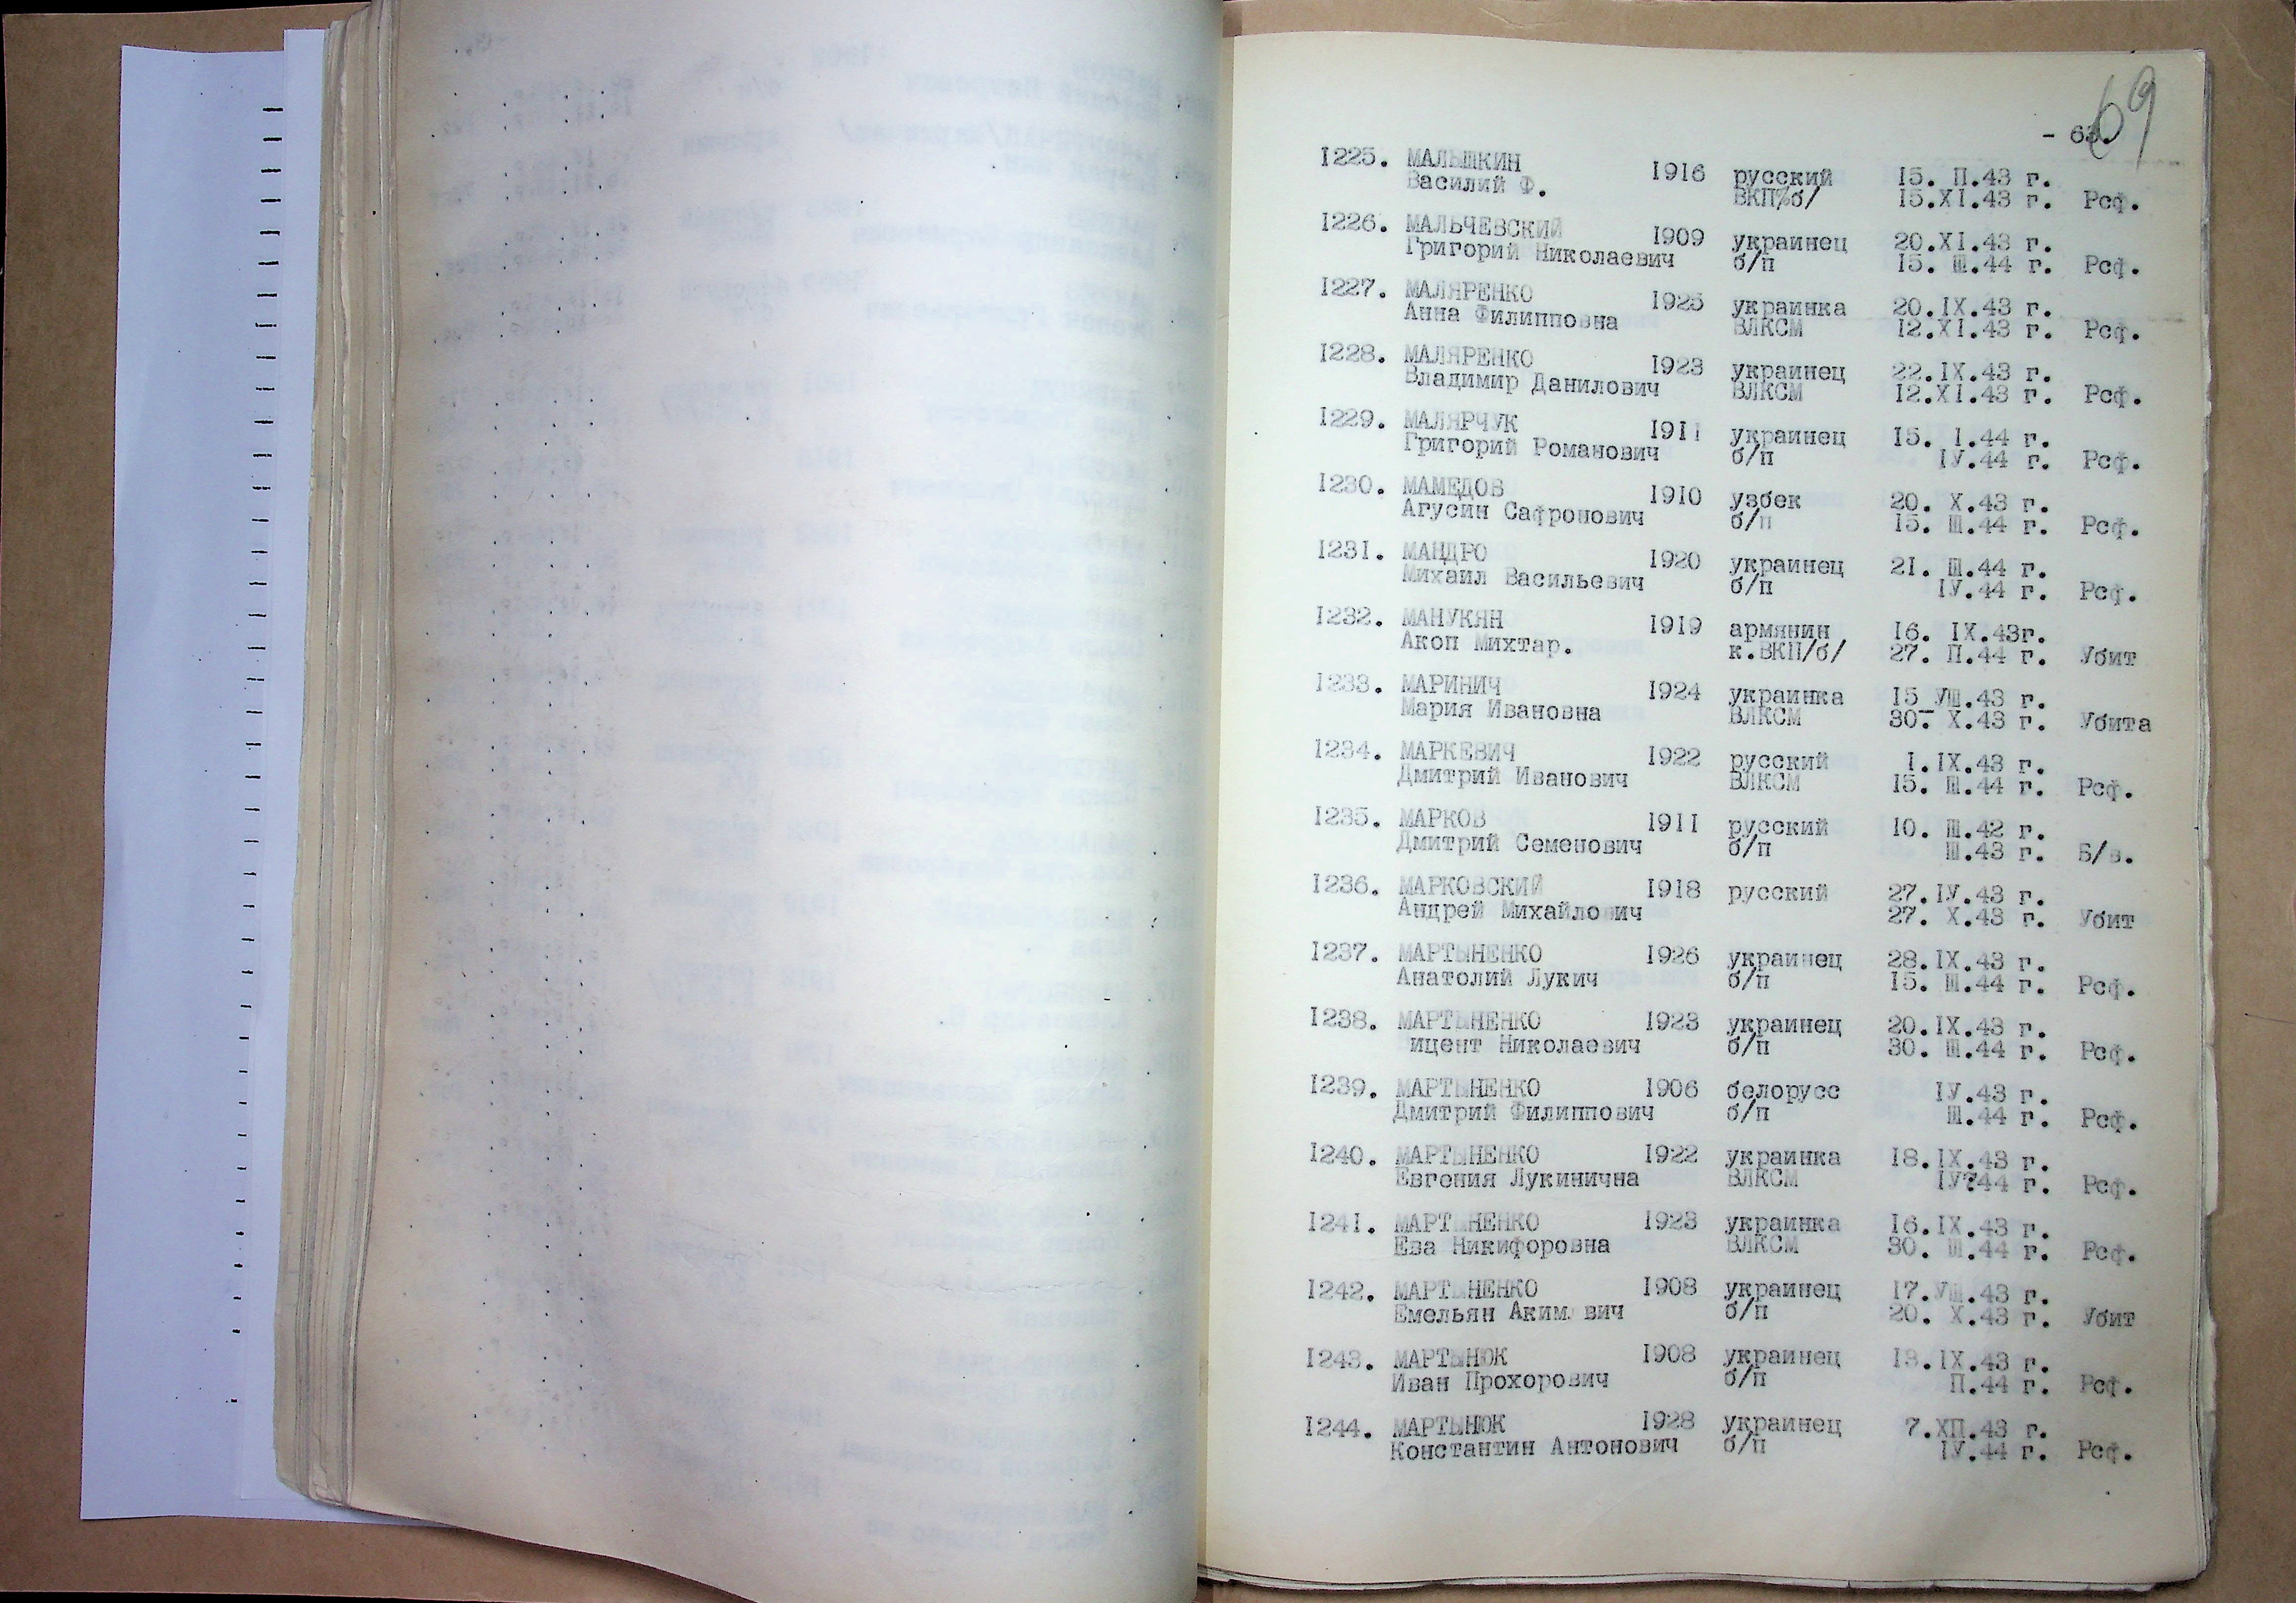 69
- 63.
1225. МАЛЫШКИН 1916 русский 15. П.43 г.
Василий Ф. ВКП%б/ 15.XI.43 г. Рсф.
1226. МАЛЬЧЕВСКИЙ 1909 украинец 20.XI.43 г.
Григорий Николаевич б/п 15. Ш.44 г. Рсф.
1227. МАЛЯРЕНКО 1925 украинка 20.IX.43 г.
Анна Филипповна ВЛКСМ 12.XI.43 г. Рсф.
1228. МАЛЯРЕНКО 1923 украинец 22.IX.43 г.
Владимир Данилович ВЛКСМ 12.XI.43 г. Рсф.
1229. МАЛЯРЧУК 1911 украинец 15. I.44 г.
Григорий Романович б/п IУ.44 г. Рсф.
1230. МАМЕДОВ 1910 узбек 20. X.43 г.
Агусин Сафронович б/п 15. Ш.44 г. Рсф.
1231. МАНДРО 1920 украинец 21. Ш.44 г.
Михаил Васильевич б/п IУ.44 г. Рсф.
1232. МАНУКЯН 1919 армянин 16. IX.43г.
Акоп Михтар. к.ВКП/б/ 27. П.44 г. Убит
1233. МАРИНИЧ 1924 украинка 15 УШ.43 г.
Мария Ивановна ВЛКСМ 30. X.43 г. Убита
1234. МАРКЕВИЧ 1922 русский 1.IX.43 г.
Дмитрий Иванович ВЛКСМ 15. Ш.44 г. Рсф.
1235. МАРКОВ 1911 русский 10. Ш.42 г.
Дмитрий Семенович б/п Ш.43 г. Б/в.
1236. МАРКОВСКИЙ 1918 русский 27.IУ.43 г.
Андрей Михайло ич 27. X.43 г. Убит
1237. МАРТЫНЕНКО 1926 украинец 28.IX.43 г.
Анатолий Лукич б/п 15. Ш.44 г. Рсф.
1238. МАРТЫНЕНКО 1923 украинец 20.IX.43 г.
ицент Николаевич б/п 30. Ш.44 г. Рсф.
1239. МАРТЫНЕНКО 1906 белорусс IУ.43 г.
Дмитрий Филиппович б/п Ш.44 г. Рсф.
1240. МАРТЫНЕНКО 1922 украинка 18.IX.43 г.
Евгения Лукинична ВЛКСМ IУ?44 г. Рсф.
1241. МАРТЫНЕНКО 1923 украинка 16.IX.43 г.
Ева Никифоровна ВЛКСМ 30. Ш.44 г. Рсф.
1242. МАРТЫНЕНКО 1908 украинец 17.УШ.43 г.
Емельян Аким вич б/п 20. X.43 г. Убит
1243. МАРТЫНЮК 1908 украинец 13.IX.43 г.
Иван Прохорович б/п П.44 г. Рсф.
1244. МАРТЫНЮК 1928 украинец 7.XП.43 г.
Константин Антонович б/п IУ.44 г. Рсф.